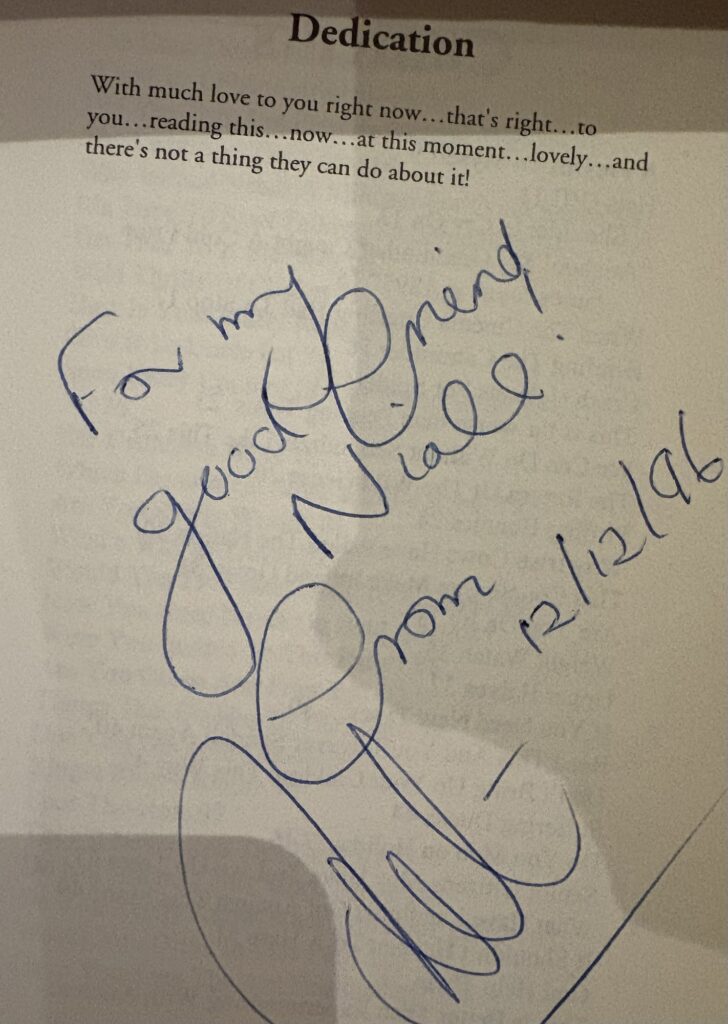 Dedication
With much love to you right now...that's right...to
you...reading this...now...at this moment...lovely...and
there's not a thing they can do about it!
For my
good Friend
Niall.
From
12/12/96